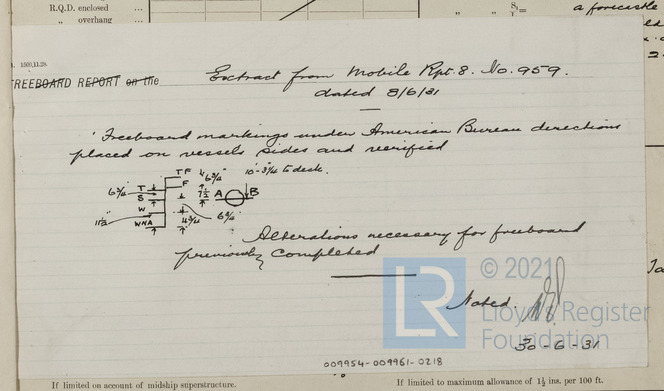 R.Q.D. enclosed ...
„ overhang
„ „ S₁=
a forecastle
1500,11.28.
FREEBOARD REPORT on the
Extract from Mobile Rpt. 8. No. 959.
dated 8/6/31
'Freeboard markings under American Bureau directions
placed on vessels sides and verified
TF 6¾" 10'-3¼" to deck.
F
6¾" T 7½ A B
S
W 6¾"
11½" WNA 4¾
Alterations necessary for freeboard
previously completed
Noted.
30-6-31
© 2021
LR
Lloyd's Register
Foundation
009954-009961-0218
If limited on account of midship superstructure.
If limited to maximum allowance of 1½ ins. per 100 ft.